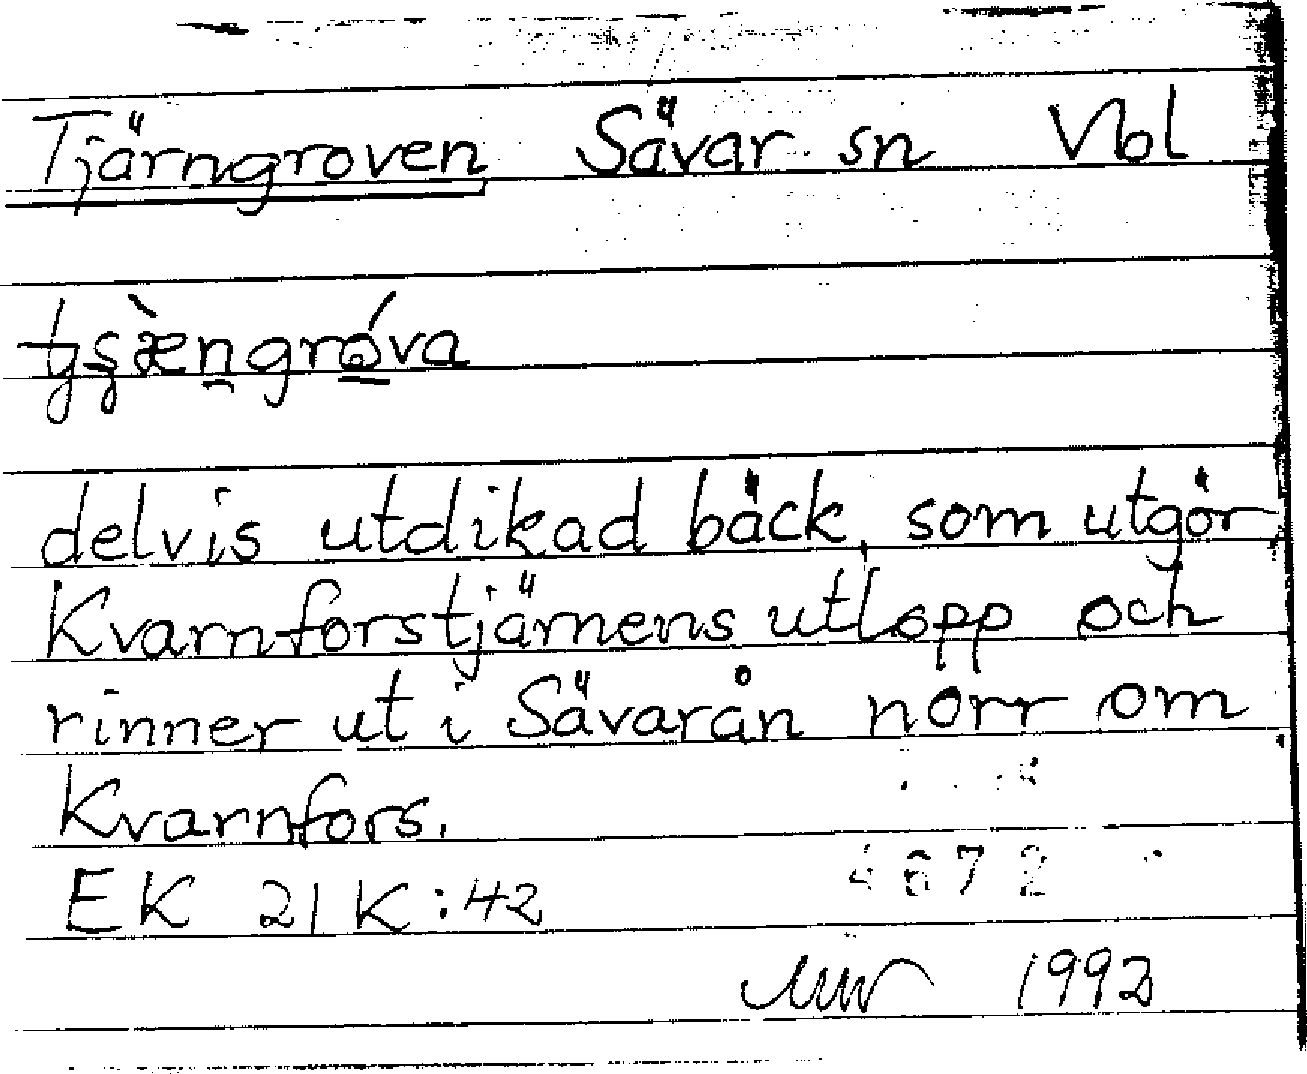 Tjärngroven Sävar sn Vbl
delvis utdikad bäck, som utgör
Kvarnforstjärnens utlopp och
rinner ut i Sävarån norr om
Kvarnfors.
EK 21 K:42
4672
1992